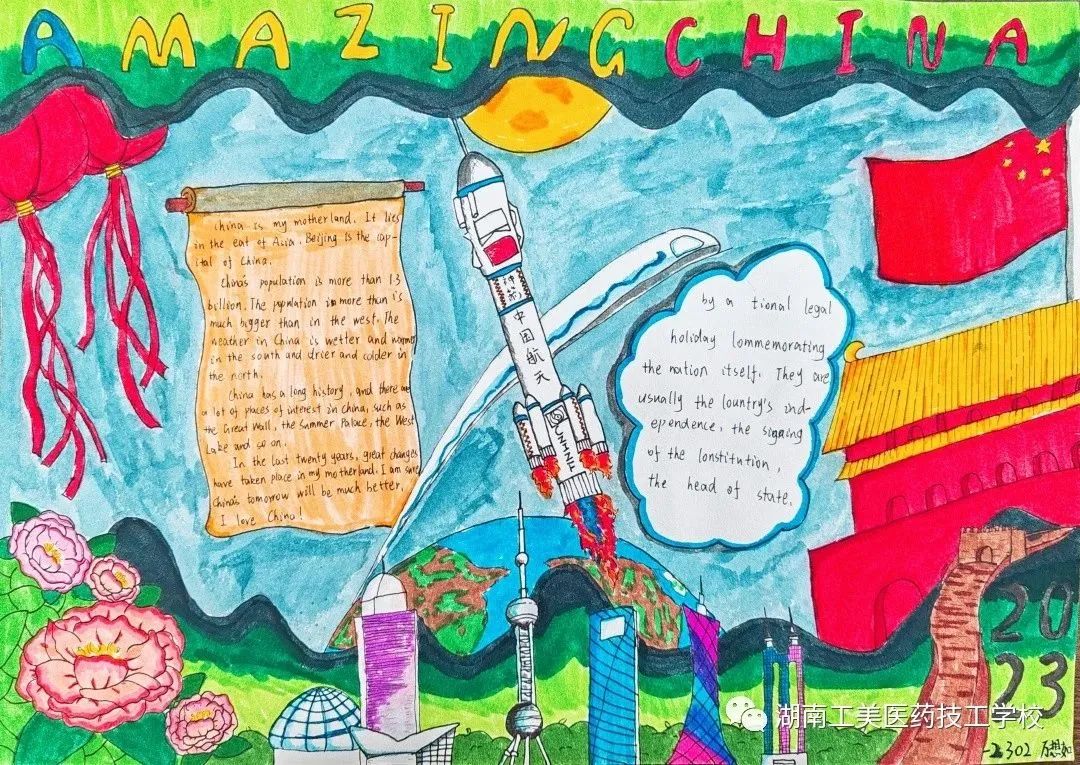 AMAZING CHINA
China is my motherland. It lies
in the eat of Asia. Beijing is the cap-
ital of China.
China's population is more than 1.3
billion. The population is more than is
much bigger than in the west. The
weather in China is wetter and warmer
in the south and drier and colder in
the north.
China has a long history, and there are
a lot of places of interest in China, such as
the Great Wall, the Summer Palace, the West
Lake and so on.
In the last twenty years, great changes
have taken place in my motherland. I am sure
China's tomorrow will be much better.
I love China!
神箭
中国航天
by a tional legal
holiday lommemorating
the nation itself. They are
usually the lountry's ind-
ependence, the signing
of the lonstitution,
the head of state.
20
23
湖南工美医药技工学校
2302